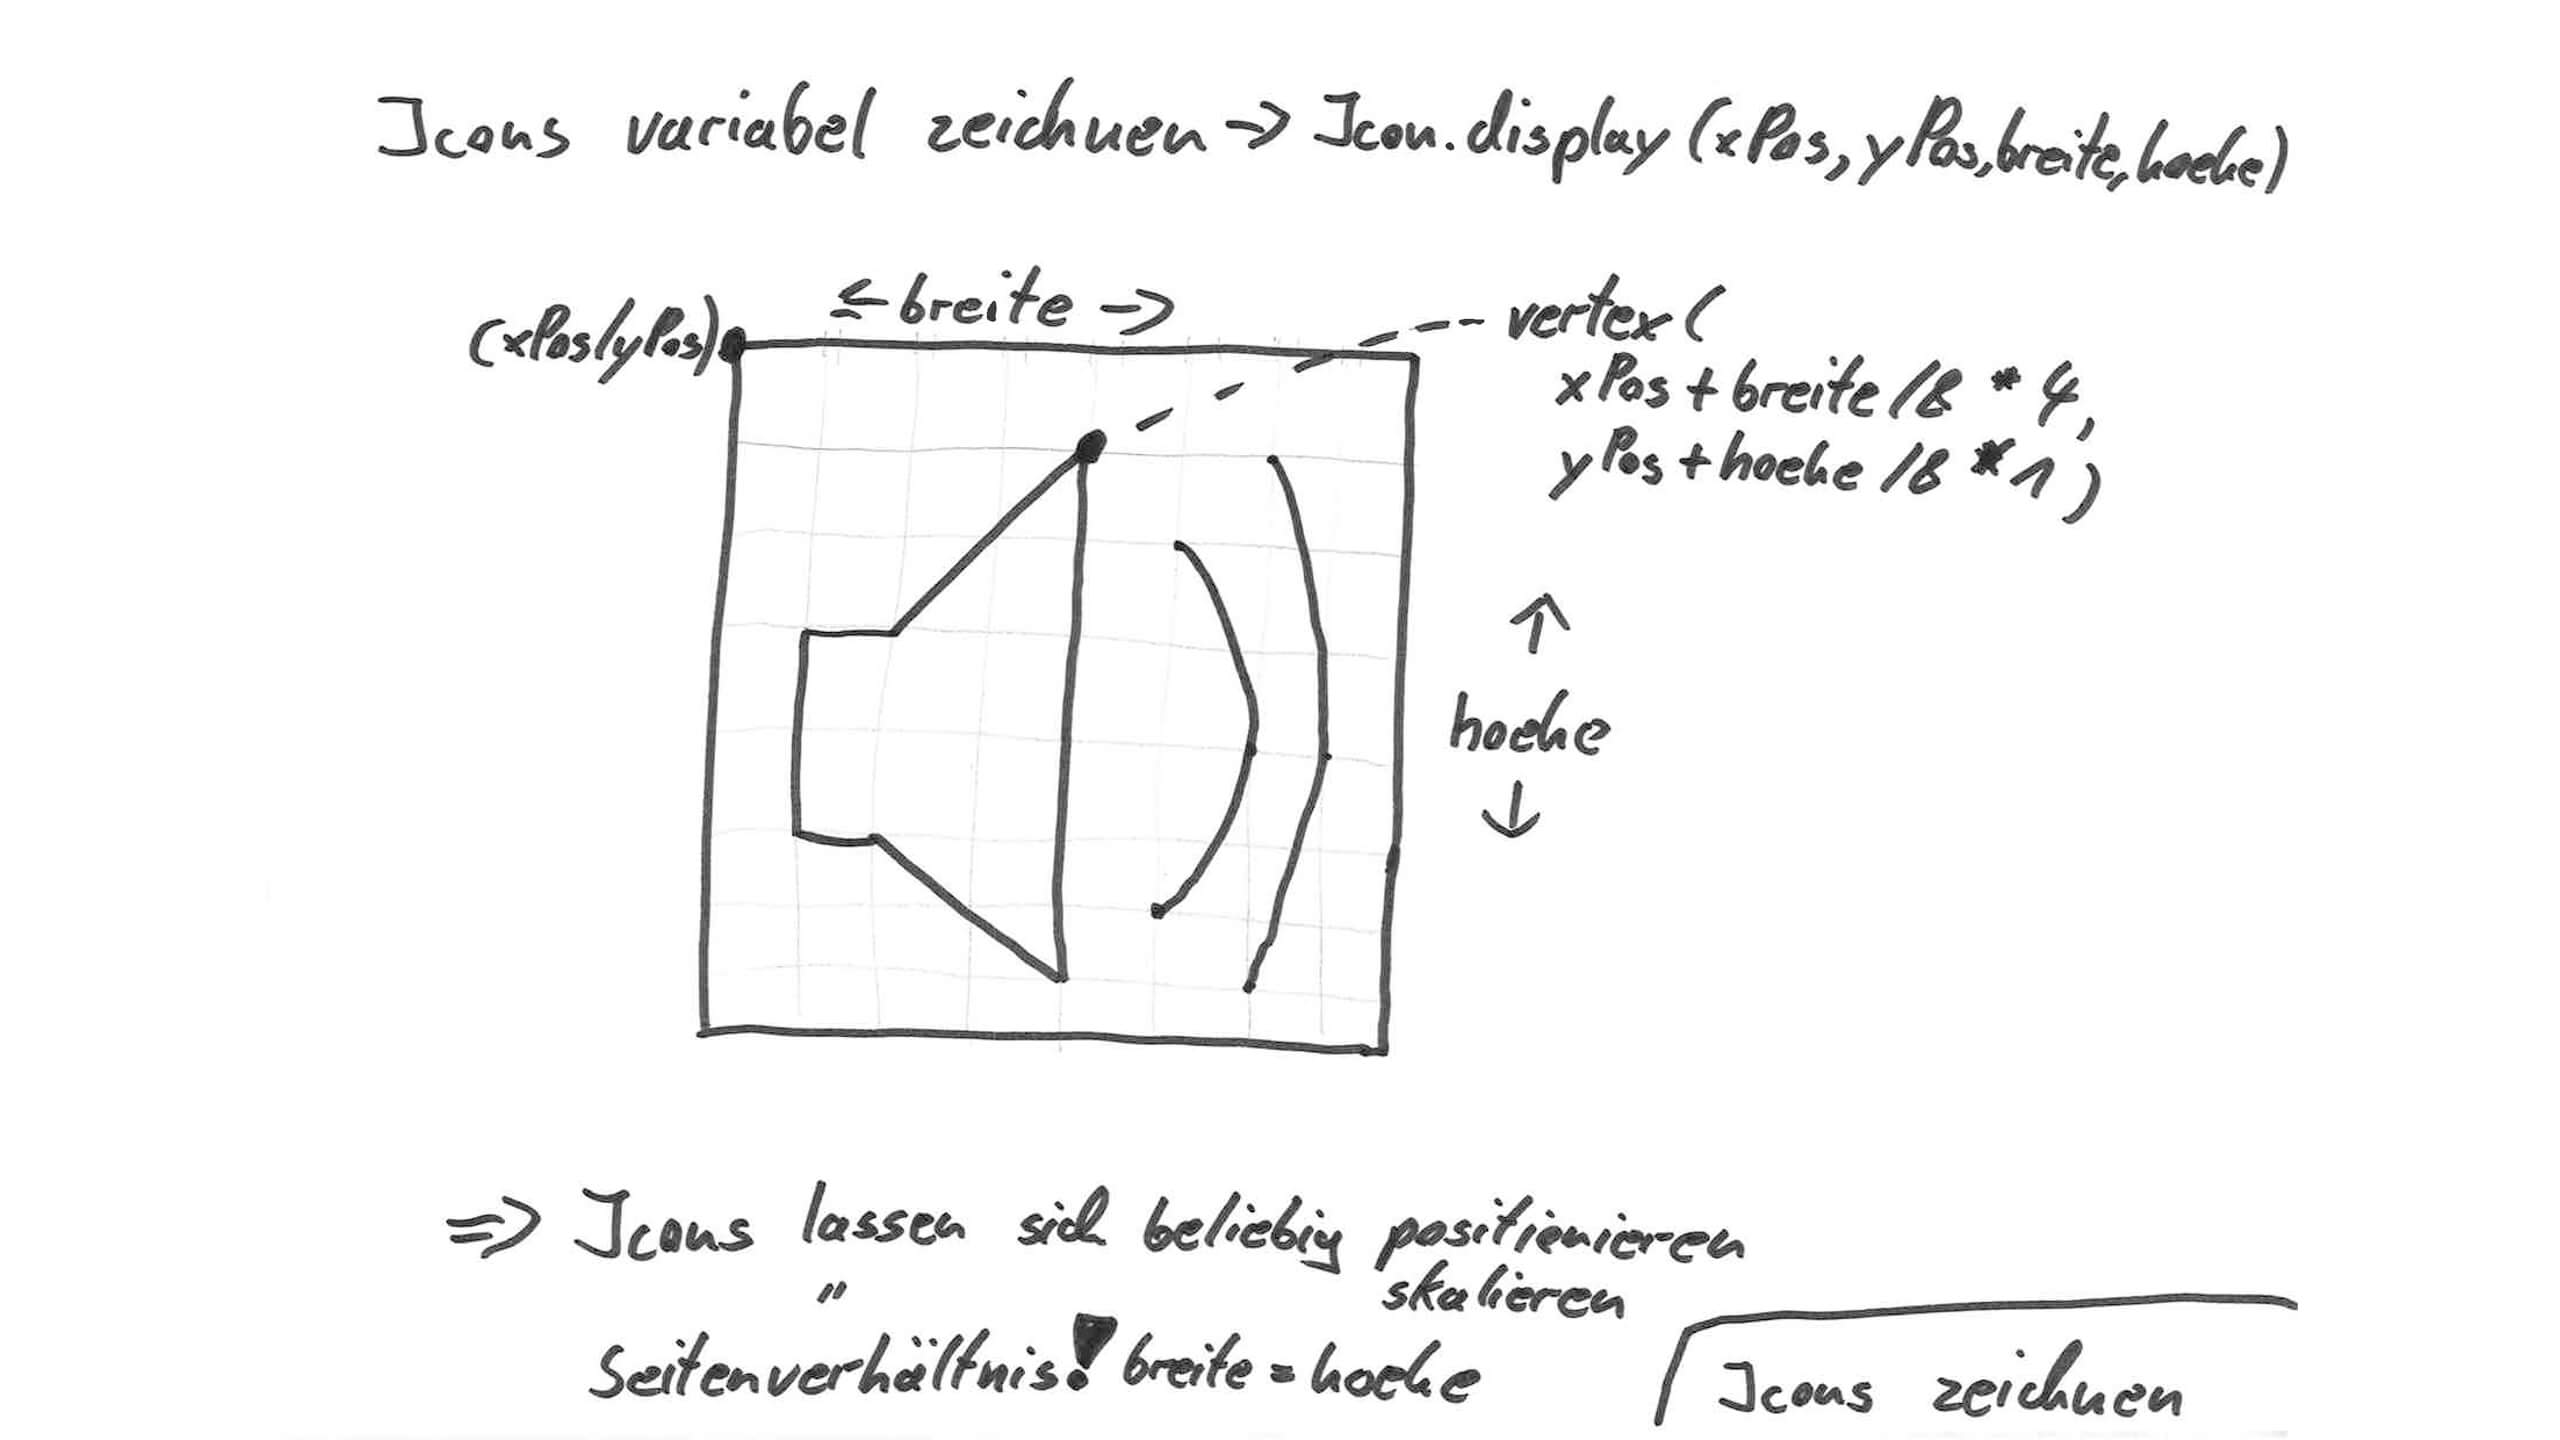 Icons variabel zeichnen -> Icon.display (xPos, yPos, breite, hoehe)
(xPos/yPos)
<- breite ->
vertex (
xPos + breite /8 * 4,
yPos + hoehe /8 * 1 )
↑
hoehe
↓
=> Icons lassen sich beliebig positionieren
" skalieren
Seitenverhältnis! breite = hoehe
Icons zeichnen